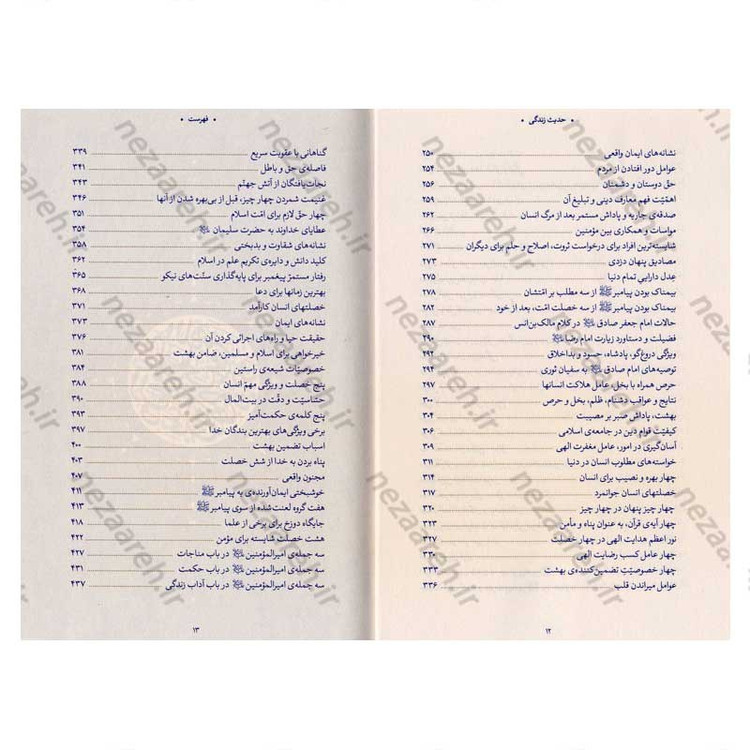 • حدیث زندگی •
نشانه‌های ایمان واقعی ۲۵۰
عوامل دور افتادن از مردم ۲۵۴
حقّ دوستان و دشمنان ۲۵۶
اهمّیّت فهم معارف دینی و تبلیغ آن ۲۵۹
صدقه‌ی جاریه و پاداش مستمر بعد از مرگ انسان ۲۶۲
مواسات و همکاری بین مؤمنین ۲۶۶
شایسته‌ترین افراد برای درخواست ثروت، اصلاح و حلم برای دیگران ۲۷۱
مصادیق پنهان دزدی ۲۷۳
عِدل دارایی تمام دنیا ۲۷۵
بیمناک بودن پیامبر ﷺ از سه مطلب بر امّتشان ۲۷۸
بیمناک بودن پیامبر ﷺ از سه خصلت امّت، بعد از خود ۲۸۲
حالات امام جعفر صادق در کلام مالک‌بن‌انس ۲۸۷
فضیلت و دستاورد زیارت امام رضا ۲۹۰
ویژگی دروغ‌گو، پادشاه، حسود و بداخلاق ۲۹۲
توصیه‌های امام صادق به سفیان ثوری ۲۹۴
حرص همراه با بخل عامل هلاکت انسانها ۲۹۷
نتایج و عواقب دشنام، ظلم، بخل و حرص ۳۰۰
بهشت، پاداش صبر بر مصیبت ۳۰۴
کیفیّت قوام دین در جامعه‌ی اسلامی ۳۰۶
آسان‌گیری در امور، عامل مغفرت الهی ۳۰۹
خواسته‌های مطلوب انسان در دنیا ۳۱۱
چهار بهره و نصیب برای انسان ۳۱۴
خصلتهای انسان جوانمرد ۳۱۷
چهار چیز پنهان در چهار چیز ۳۲۰
چهار آیه‌ی قرآن، به عنوان پناه و مأمن ۳۲۳
نور اعظم هدایت الهی در چهار خصلت ۳۲۷
چهار عامل کسب رضایت الهی ۳۳۰
چهار خصوصیّتِ تضمین‌کننده‌ی بهشت ۳۳۳
عوامل میراندن قلب ۳۳۶
۱۲
• فهرست •
گناهانی با عقوبت سریع ۳۳۹
فاصله‌ی حق و باطل ۳۴۱
نجات‌یافتگان از آتش جهنّم ۳۴۳
غنیمت شمردن چهار چیز، قبل از بی‌بهره شدن از آنها ۳۴۶
چهار حقّ لازم برای امّت اسلام ۳۵۱
عطایای خداوند به حضرت سلیمان ۳۵۴
نشانه‌های شقاوت و بدبختی ۳۵۸
کلید دانش و دایره‌ی تکریم علم در اسلام ۳۶۲
رفتار مستمرّ پیغمبر برای پایه‌گذاری سنّت‌های نیکو ۳۶۵
بهترین زمانها برای دعا ۳۶۸
خصلتهای انسان کارآمد ۳۷۱
نشانه‌های ایمان ۳۷۳
حقیقت حیا و راه‌های اجرائی کردن آن ۳۷۶
خیرخواهی برای اسلام و مسلمین، ضامن بهشت ۳۸۱
خصوصیّات شیعه‌ی راستین ۳۸۴
پنج خصلت و ویژگی مهمّ انسان ۳۸۸
حسّاسیّت و دقّت در بیت‌المال ۳۹۰
پنج کلمه‌ی حکمت‌آمیز ۳۹۳
برخی ویژگی‌های بهترین بندگان خدا ۳۹۷
اسباب تضمین بهشت ۴۰۰
پناه بردن به خدا از شش خصلت ۴۰۳
مجنون واقعی ۴۰۷
خوشبختی ایمان‌آورنده‌ی به پیامبر ﷺ ۴۱۱
هفت گروه لعنت‌شده از سوی پیامبر ﷺ ۴۱۳
جایگاه دوزخ برای برخی از علما ۴۱۸
هشت خصلت شایسته برای مؤمن ۴۲۲
سه جمله‌ی امیرالمؤمنین در باب مناجات ۴۲۷
سه جمله‌ی امیرالمؤمنین در باب حکمت ۴۳۱
سه جمله‌ی امیرالمؤمنین در باب آداب زندگی ۴۳۷
۱۳
nezaareh.ir